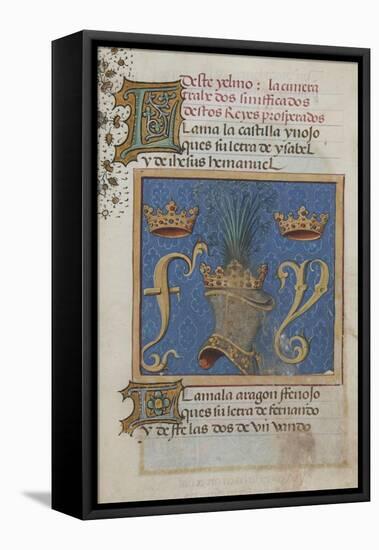 Deste yelmo: la cimera
trahe dos sinificados
destos Reyes prosperados
Llama la castilla ynojo
ques su letra de ysabel
y de ihesus hemanuel
f y
Llamala aragon ffenojo
ques su letra de fernando
y de ffe las dos de vn vando